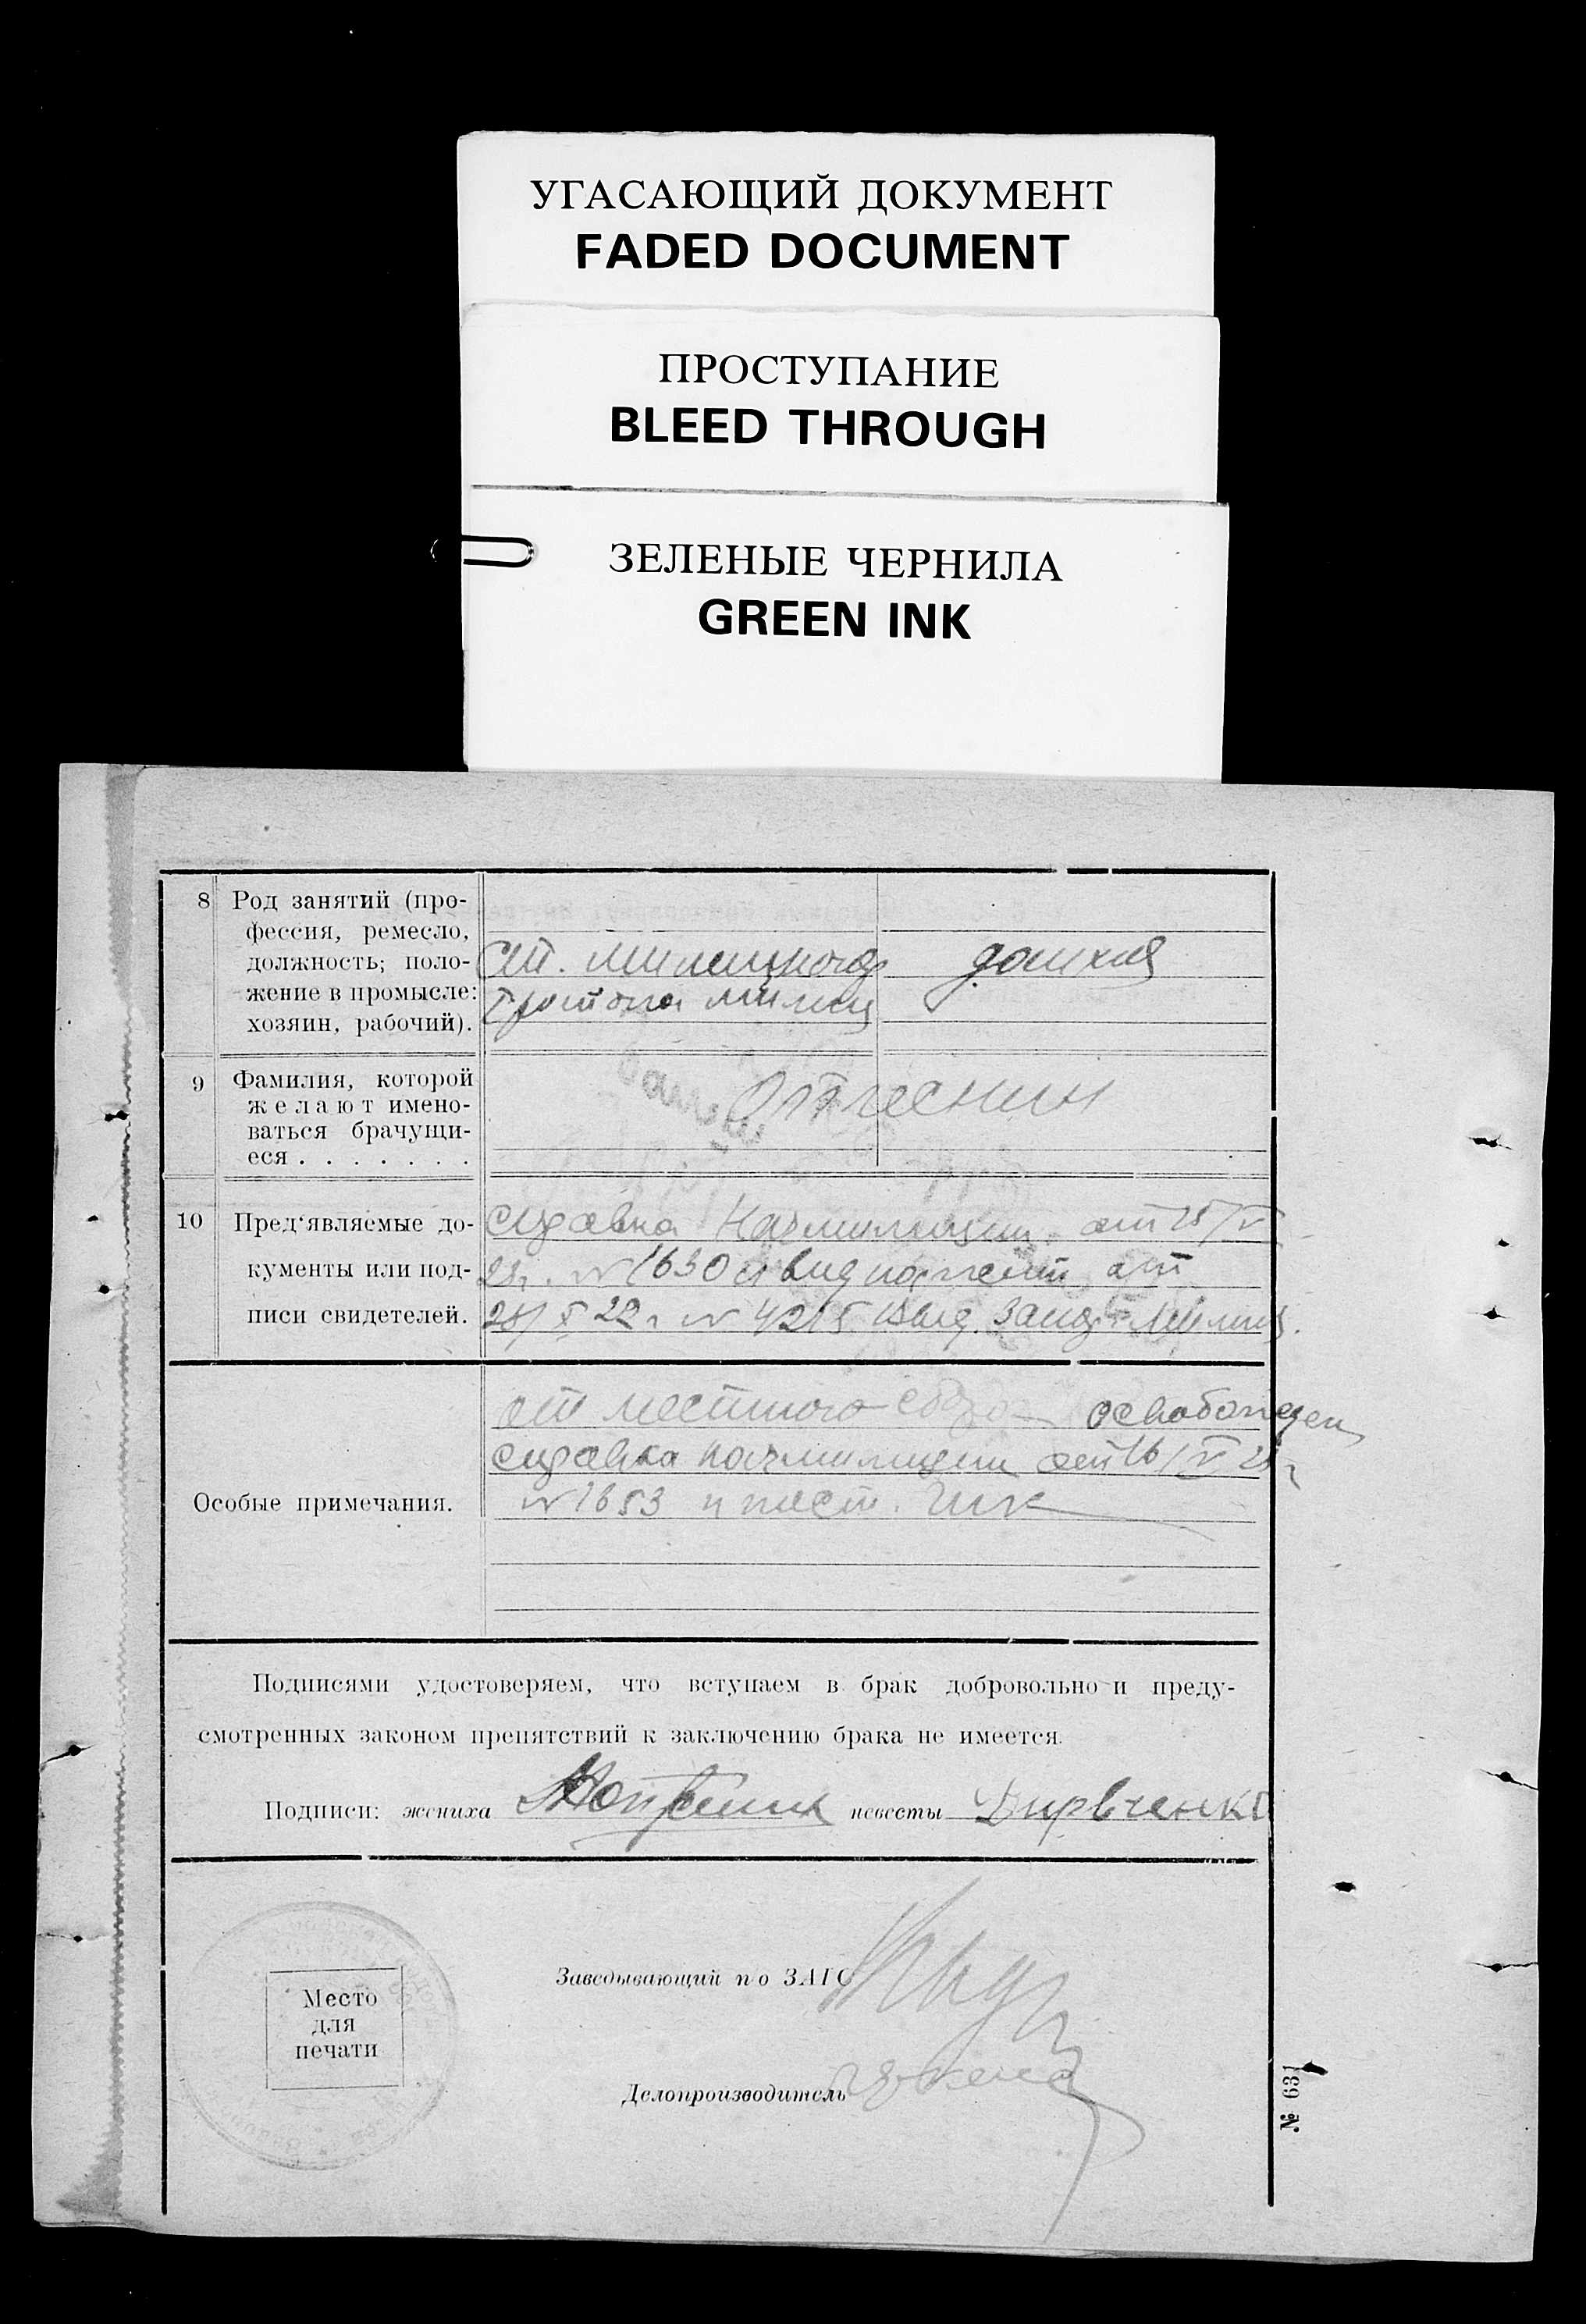 УГАСАЮЩИЙ ДОКУМЕНТ
FADED DOCUMENT
ПРОСТУПАНИЕ
BLEED THROUGH
ЗЕЛЕНЫЕ ЧЕРНИЛА
GREEN INK
8 Род занятий (про-
фессия, ремесло,
должность; поло-
жение в промысле:
хозяин, рабочий).
Ст. милиционер
милиц
домхоз
9 Фамилия, которой
желают имено-
ваться брачущи-
еся . . . . . . .
10 Пред'являемые до-
кументы или под-
писи свидетелей.
справка Начмилиции от 25/V
28г. № 1630 и вид на жит. от
28/X 22 г № 4215 выд. милиц.
Особые примечания.
от местного сбора освобожден
справка начмилиции от 16/V 28 г
№ 1653 и пост.
Подписями удостоверяем, что вступаем в брак добровольно и преду-
смотренных законом препятствий к заключению брака не имеется.
Подписи: жениха невесты Дирвченко
Заведывающий по ЗАГС
Место
для
печати
Делопроизводитель
№ 631